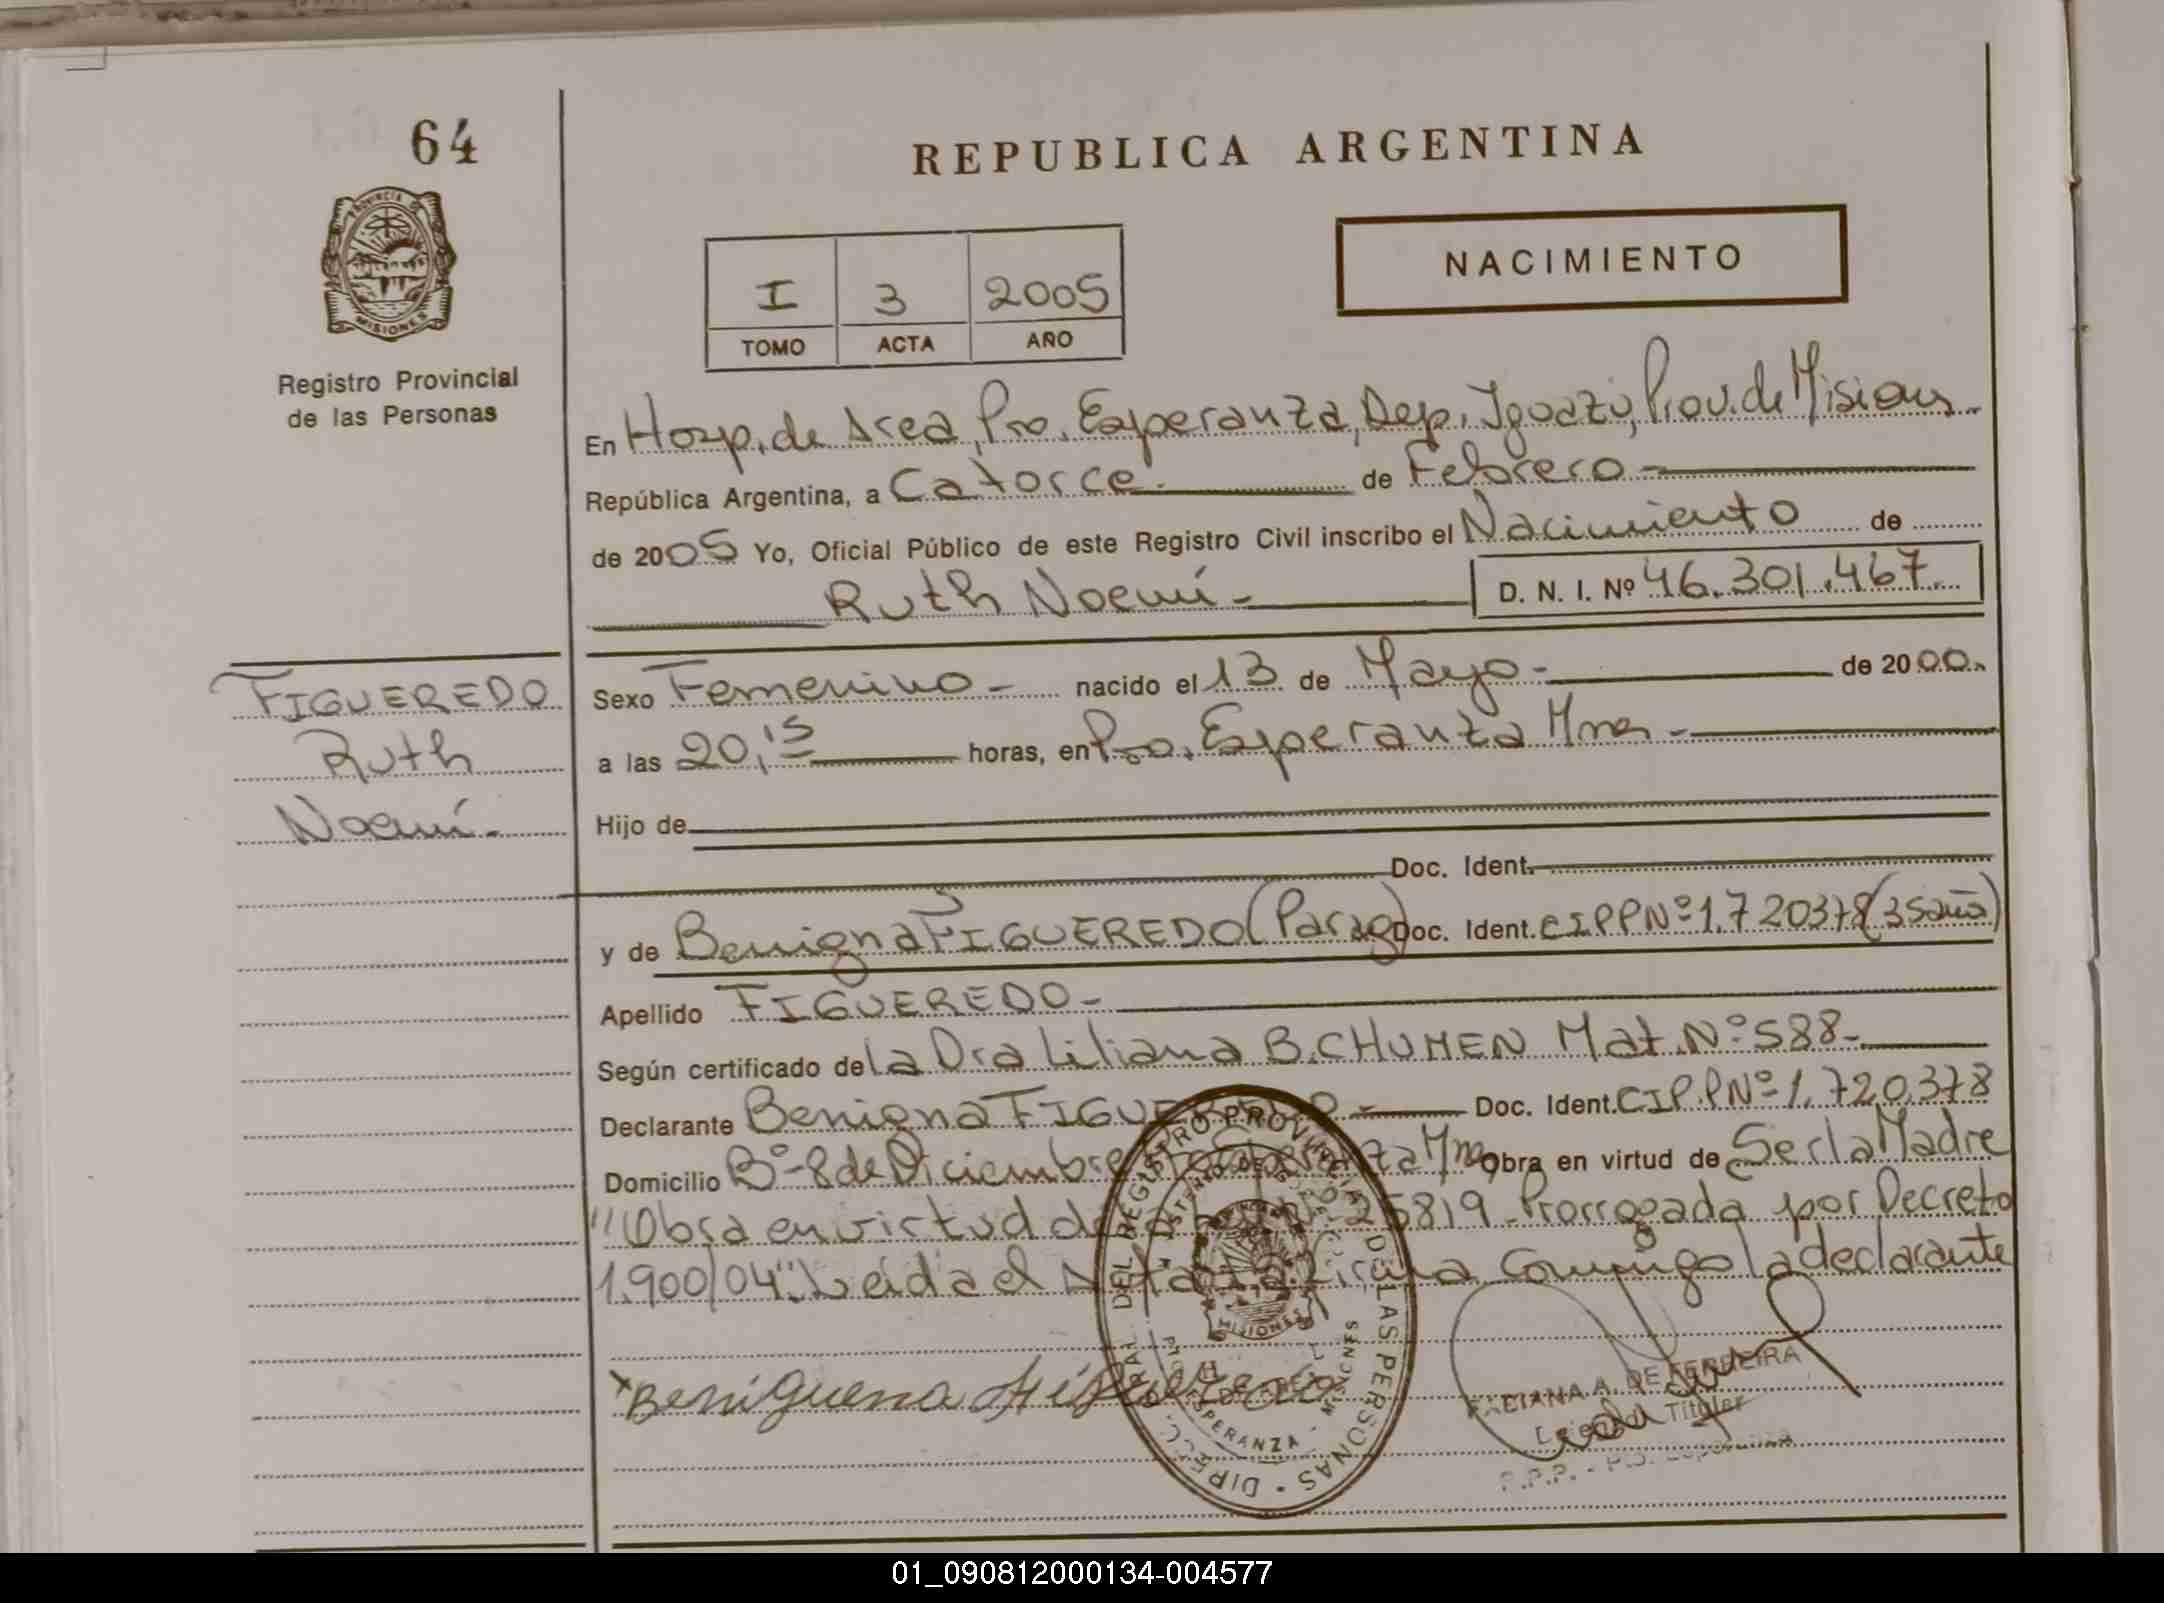 64
REPUBLICA ARGENTINA
PROVINCIA DE
MISIONES
Registro Provincial
de las Personas
I 3 2005
TOMO ACTA AÑO
NACIMIENTO
En Hosp. de Area, Pto. Esperanza, Dep. Iguazú, Prov. de Misiones
República Argentina, a Catorce.- de Febrero.-
de 2005 Yo, Oficial Público de este Registro Civil inscribo el Nacimiento de
Ruth Noemí.- D. N. I. Nº 46.301.467
FIGUEREDO
Ruth
Noemí.-
Sexo Femenino.- nacido el 13 de Mayo.- de 2000.
a las 20,15 horas, en Pto. Esperanza Mnes.-
Hijo de
Doc. Ident.
y de Benigna FIGUEREDO (Parag) Doc. Ident. CIPPNº1.720378 (35 años)
Apellido FIGUEREDO.-
Según certificado de la Dra Liliana B. CHUMEN Mat. Nº 588.-
Declarante Benigna FIGUEREDO.- Doc. Ident. CIP.PNº1.720.378
Domicilio Bº-8 de Diciembre Mnes Obra en virtud de Ser la Madre
"Obra en virtud de 25819 - Prorrogada por Decreto
1.900/04". Leida el Acta la firma Conmigo la declarante
x Beniguena Figueredo
DIRECC. GRAL. DEL REGISTRO PROVINCIAL DE LAS PERSONAS
MISIONES
ESPERANZA - MISIONES
FABIANA A. DE FERREIRA
Titular
R.P.P. - Pto. Esperanza
01_090812000134-004577